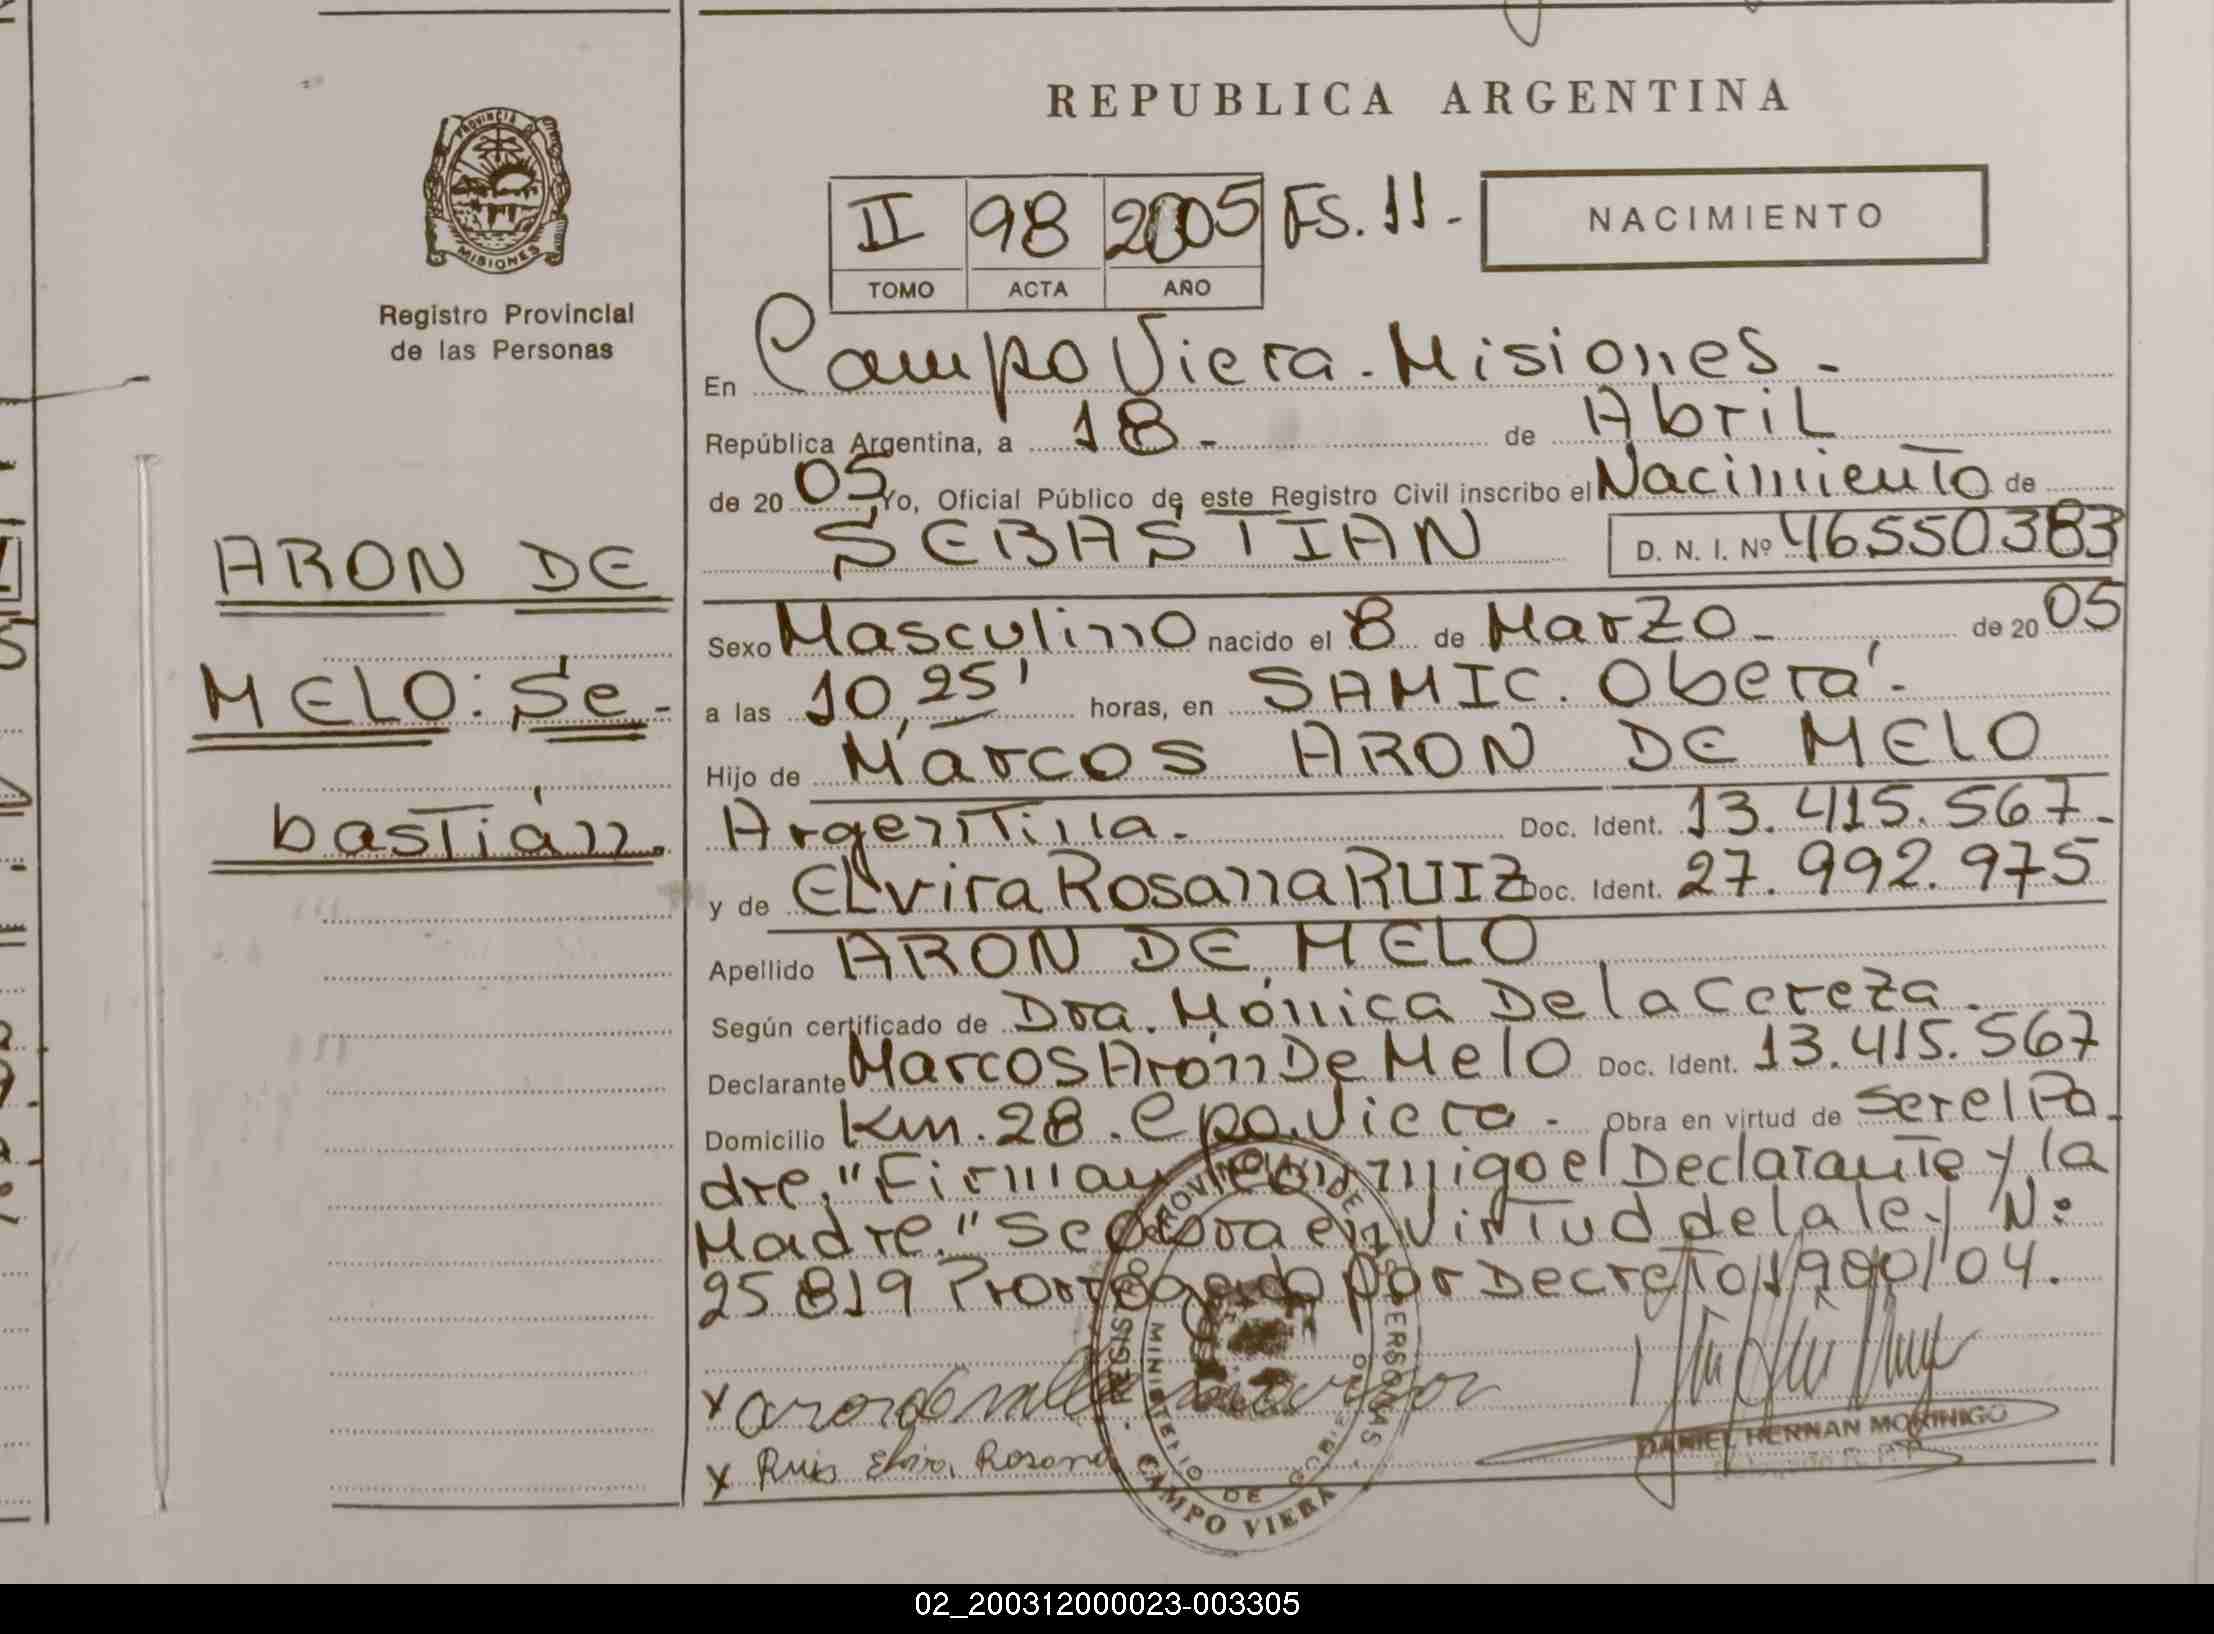 REPUBLICA ARGENTINA
PROVINCIA DE MISIONES
Registro Provincial
de las Personas
II 98 2005 FS. 11.-
TOMO ACTA AÑO
NACIMIENTO
En Campo Viera. Misiones.-
República Argentina, a 18.- de Abril
de 20 05 Yo, Oficial Público de este Registro Civil inscribo el Nacimiento de
SEBASTIAN D. N. I. Nº 46550383
ARON DE
MELO: Se-
bastián.
Sexo Masculino nacido el 8 de Marzo.- de 20 05
a las 10,25' horas, en SAMIC. Oberá.-
Hijo de Marcos ARON DE MELO
Argentina.- Doc. Ident. 13.415.567.-
y de ELvira Rosana RUIZ Doc. Ident. 27.992.975
Apellido ARON DE MELO
Según certificado de Dra. Mónica De la Cereza.
Declarante Marcos Arón De Melo Doc. Ident. 13.415.567
Domicilio Km. 28. Cpo. Viera.- Obra en virtud de ser el Pa-
dre. "Firman conmigo el Declarante y la
Madre." Se obra en Virtud de la ley N:
25819 Prorrogado por Decreto 1900/04.
X
X Ruis Elvira Rosana
DANIEL HERNAN MORINIGO
CAMPO VIERA
02_200312000023-003305